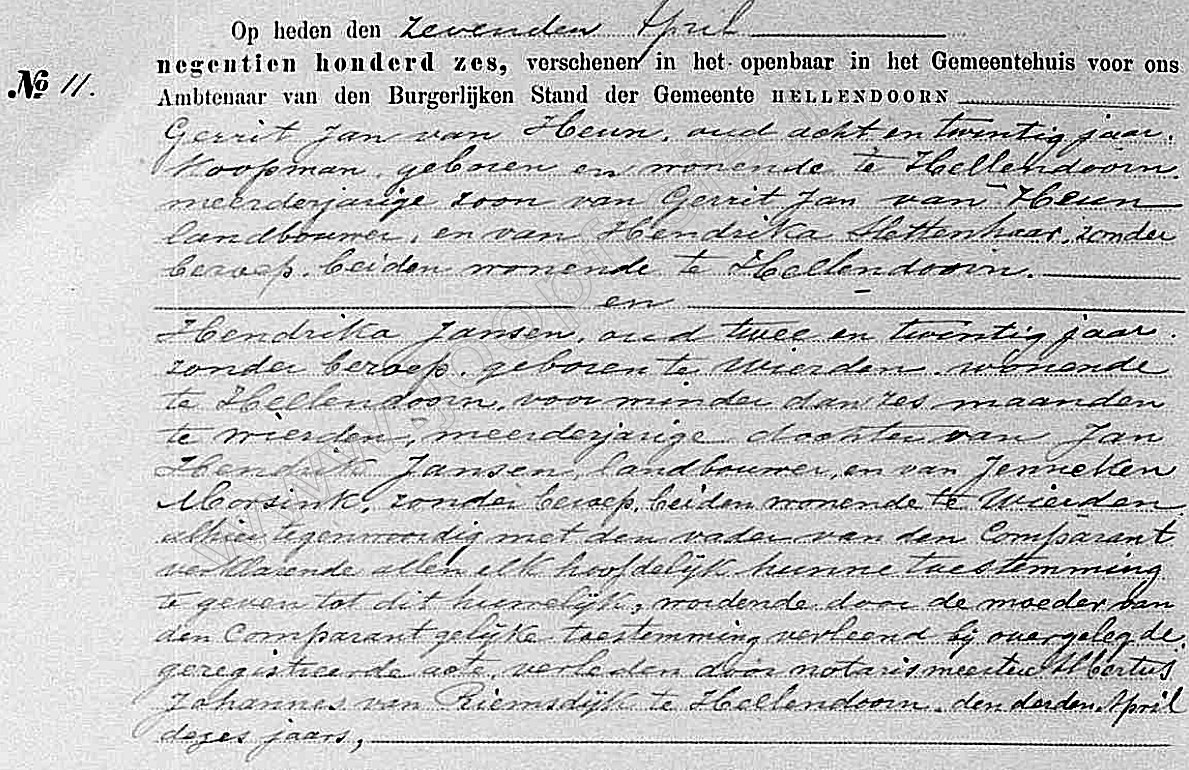 Op heden den zevenden April
negentien honderd zes, verschenen in het openbaar in het Gemeentehuis voor ons
No 11.
Ambtenaar van den Burgerlijken Stand der Gemeente HELLENDOORN
Gerrit Jan van Heun, oud acht en twintig jaar,
Koopman, geboren en wonende te Hellendoorn,
meerderjarige zoon van Gerrit Jan van Heun
landbouwer, en van Hendrika Mettenhaar, zonder
beroep, beiden wonende te Hellendoorn.
en
Hendrika Jansen, oud twee en twintig jaar,
zonder beroep, geboren te Wierden, wonende
te Hellendoorn, voor minder dan zes maanden
te Wierden, meerderjarige dochter van Jan
Hendrik Jansen, landbouwer, en van Jenneken
Morsink, zonder beroep, beiden wonende te Wierden
alhier tegenwoordig met den vader van den Comparant
verklarende allen elk hoofdelijk hunne toestemming
te geven tot dit huwelijk, wordende door de moeder van
den Comparant gelijke toestemming verleend bij overgelegde
geregistreerde acte, verleden door notaris meester Albertus
Johannes van Riemsdijk te Hellendoorn, den derden April
dezes jaars,